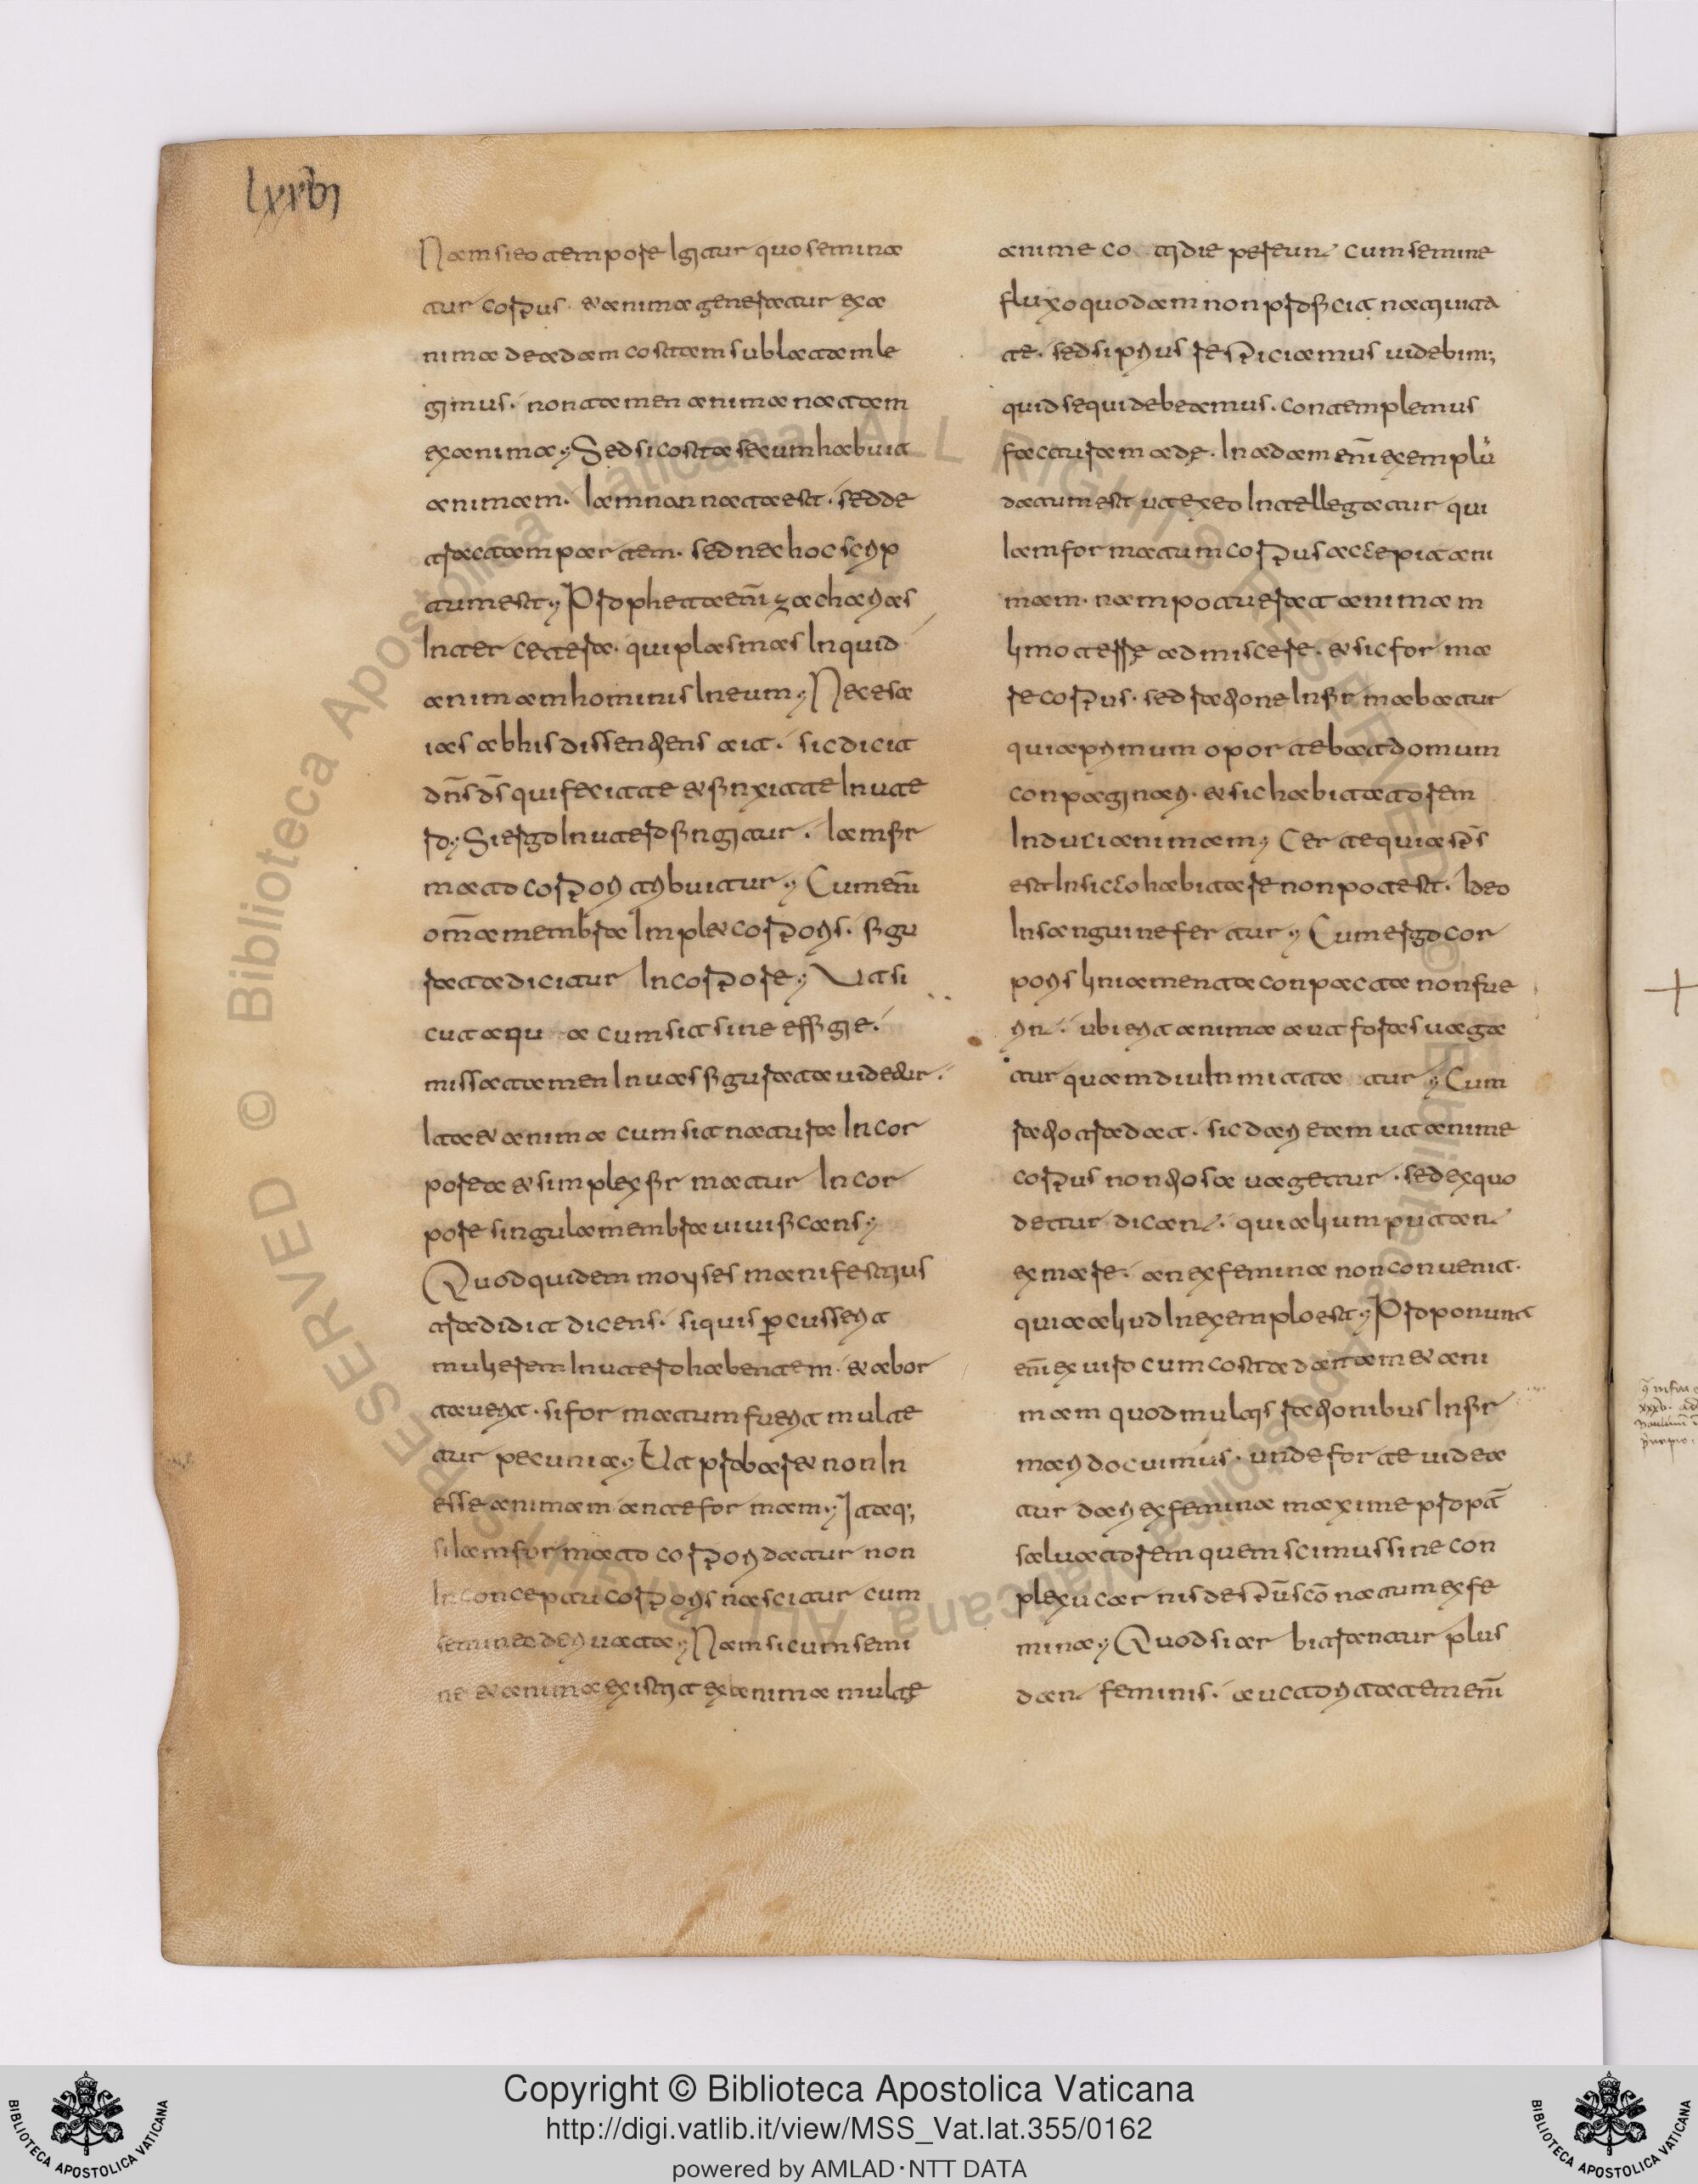 lxxvi
Nam si eo tempore Igitur quo semina
tur corpus et anima generatur ex a
nima de adam costam sublatam le
gimus. non tamen anima natam
ex anima; Sed si costa secum habuit
animam. Iam non nata est. sed de
tracta in partem. sed nec hoc scrip
tum est; Propheta enī zacharias
Inter cetera. qui plasmas Inquid
animam hominis In eum; Nec esa
ias ab his dissentiens ait. sic dicit
dn̄s ds̄ qui fecit te et finxit te In ute
ro; Si ergo In utero fingitur. Iam for
mato corpori tribuitur; Cum enī
om̄a membra Implet corporis. figu
rata dicitur In corpore; Ut si
cut aqu a cum sit sine effigie.
missa tamen In uas figurata uidetur.
Ita et anima cum sit natura Incor
porea et simplex firmatur In cor
pore singula membra uiuificans;
Quod quidem moyses manifestius
tradidit dicens. si quis p̱cusserit
mulierem In utero habentem. et abor
tauerit. si formatum fuerit mulcte
tur pecunia; Ut probaret non In
esse animam ante formam; Itaq;
si Iam formato corpori datur non
In conceptu corporis nascitur cum
semine deriuata; Nam si cum semi
ne et anima existit ex anima multę
anime co tidie pereunt cum semine
fluxo quodam non proficit natiuita
te. sed si prius respiciamus uidebim;
quid sequi debeamus. contemplemus
facturam adę. In adam enī exemplū
datum est ut ex eo Intellegatur qui
Iam formatum corpus accepit ani
mam. nam potuerat animam
limo terrę admiscere. et sic forma
re corpus. sed ratione Infirmabatur
quia primum oportebat domum
conpaginari. et sic habitatorem
Induci animam; Certe quia sp̄s
est In sicco habitare non potest. Ideo
In sanguine fertur; Cum ergo cor
poris liniamenta conpacta non fue
rint. ubi erit anima aut foras uaga
tur quamdiu Inmitta tur; Cum
ratio tradat. sic dari eam ut anime
corpus non otiosa uagetur. sed ex quo
detur dicant. qui alium putant
ex mare. an ex femina non conuenit.
quia aliud In exemplo est; Proponunt
enī ex uiro cum costa dantam et ani
mam quod multis rationibus Infir
mari docuimus. unde forte uidea
tur dari ex femina maxime prop̄t
saluatorem quem scimus sine con
plexu carnis de sp̄u sc̄o natum ex fe
mina; Quod si arbitrantur plus
dant feminis. auctoritatem enī